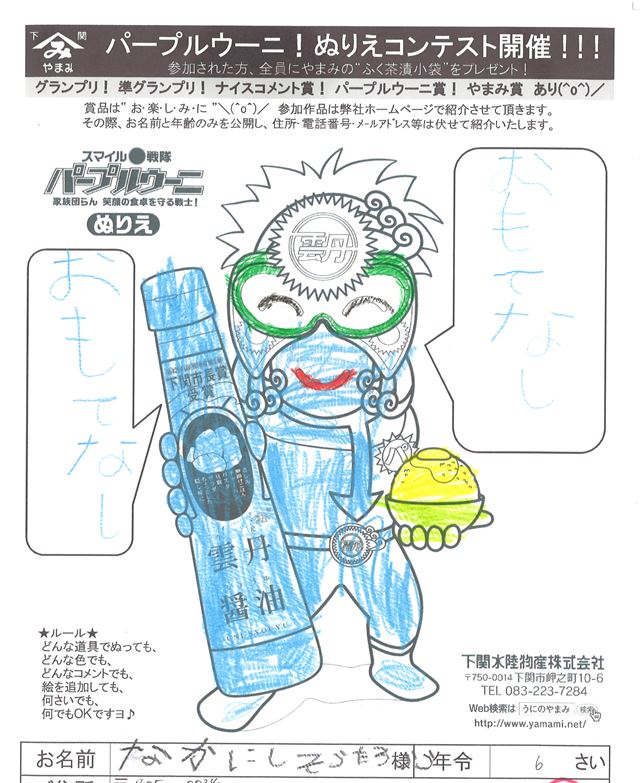 下 関
やまみ
パープルウーニ！ぬりえコンテスト開催！！！
参加された方、全員にやまみの“ふく茶漬小袋”をプレゼント！
グランプリ！ 準グランプリ！ ナイスコメント賞！ パープルウーニ賞！ やまみ賞 あり(^o^)／
賞品は“お・楽・し・み・に”＼(^o^)／ 参加作品は弊社ホームページで紹介させて頂きます。
その際、お名前と年齢のみを公開し、住所・電話番号・メールアドレス等は伏せて紹介いたします。
スマイル●戦隊
パープルウーニ
家族団らん 笑顔の食卓を守る戦士！
ぬりえ
おもてなし
おもてなし
雲丹
下関市長賞
受賞
雲丹
醤油
UNI-JYOUYU
パ
★ルール★
どんな道具でぬっても、
どんな色でも、
どんなコメントでも、
絵を追加しても、
何さいでも、
何でもOKですヨ♪
下関水陸物産株式会社
〒750-0014 下関市岬之町10-6
TEL 083-223-7284
Web検索は うにのやまみ 検索
http://www.yamami.net/
お名前 なかにし 様 年令 6 さい